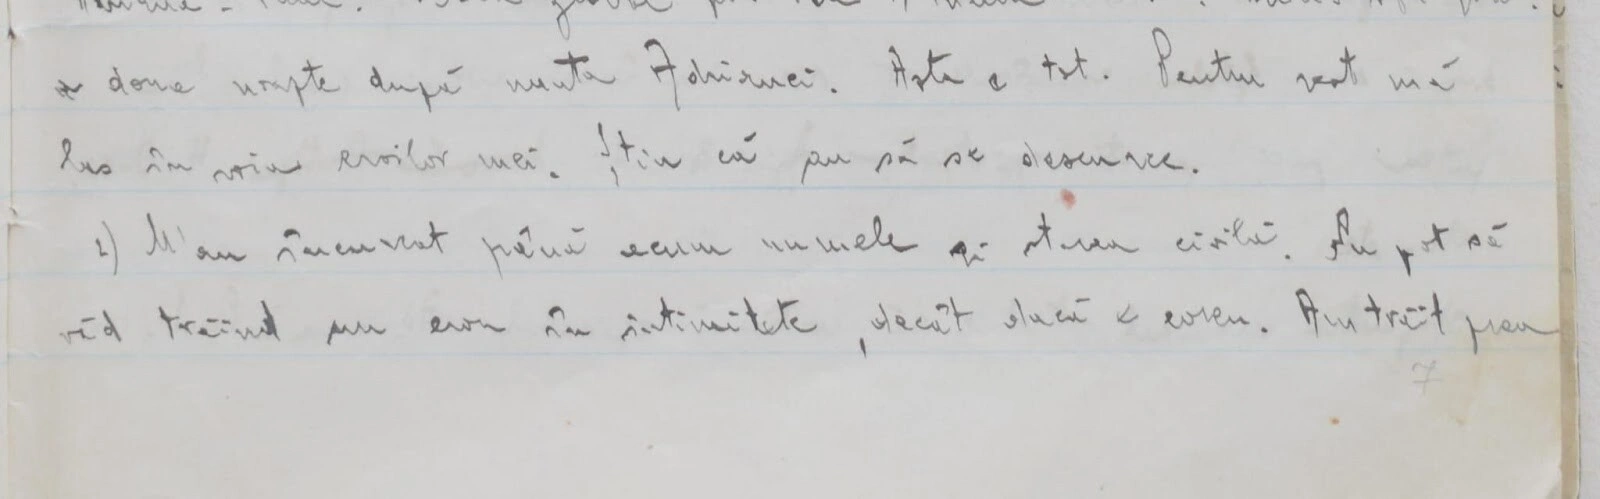 a doua noapte după nunta Adrianei. Asta e tot. Pentru rest mă
las în voia eroilor mei. Știu că au să se descurce.
2) M'au încurcat până acum numele și starea civilă. Nu pot să
văd trăind un erou în intimitate, decât dacă e evreu. Am trăit prea
7